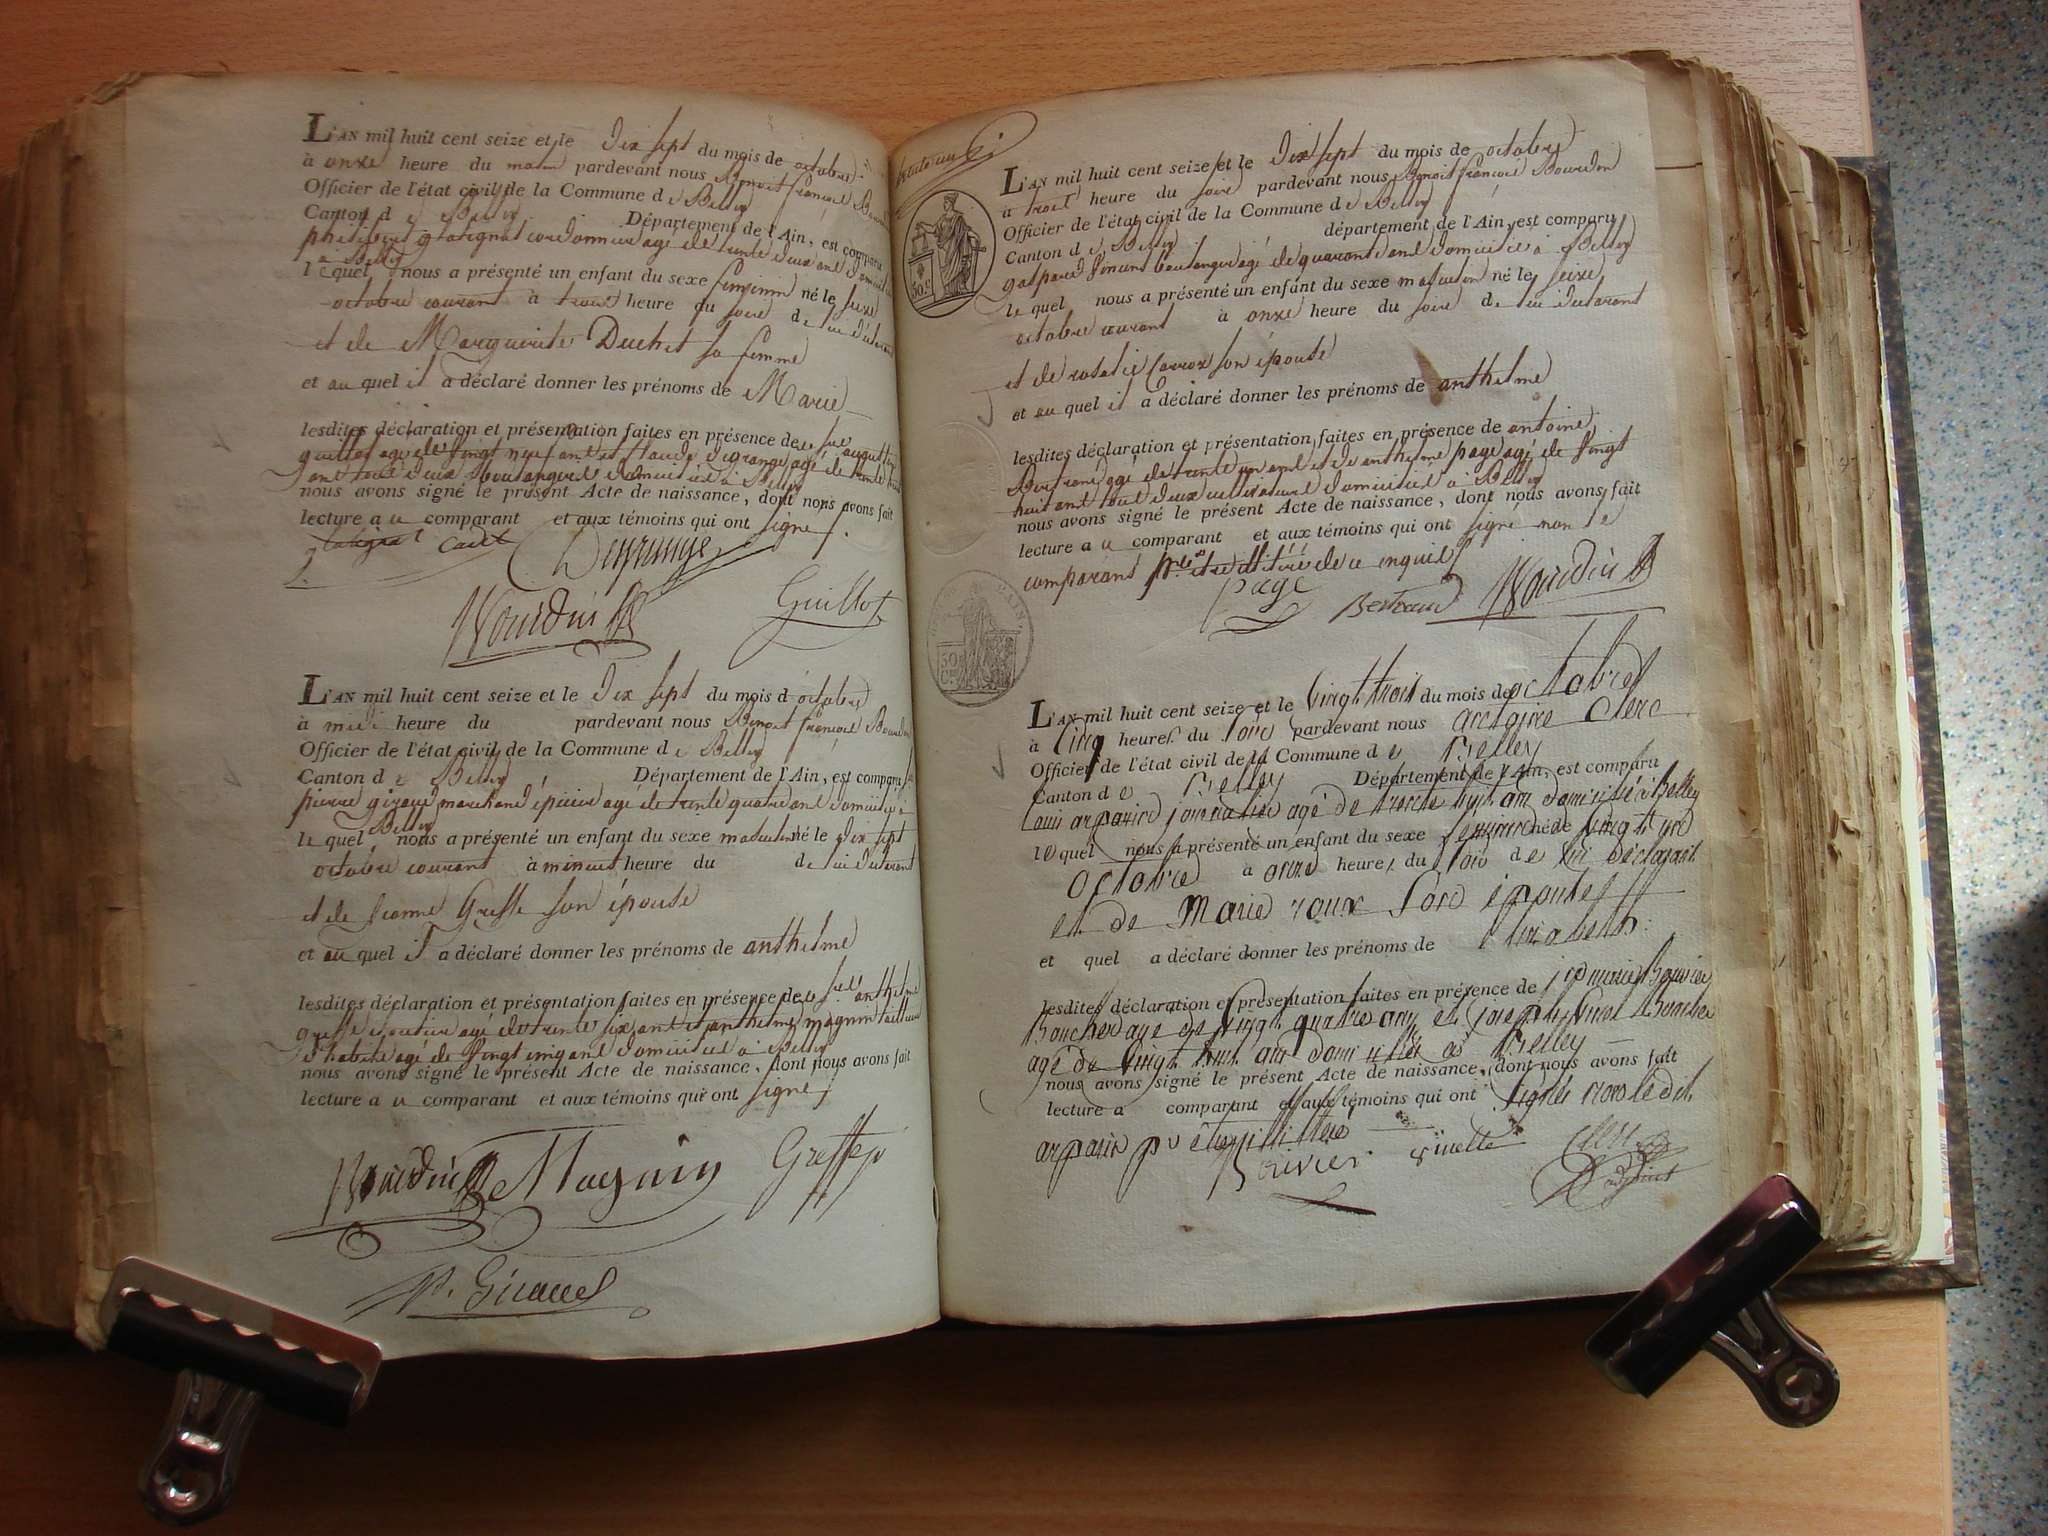 L'AN mil huit cent seize et le Dix sept du mois de octobre
à onze heure du matin pardevant nous Benoit françois
Officier de l'état civil de la Commune de Belley
Canton de Belley Département de l'Ain, est comparu
cordonnier agé de trente deux ans
à Belley
lequel nous a présenté un enfant du sexe feminin né le seize
octobre courant à trois heure du soire de lui déclarant
et de Marguerite Duchet sa femme
et au quel il a déclaré donner les prénoms de Marie
lesdites déclaration et présentation faites en présence de
agé de vingt neuf ans et agé de trente
ans tous deux boulangers domicilié à Belley
nous avons signé le présent Acte de naissance, dont nous avons fait
lecture a u comparant et aux témoins qui ont signé
cadet Degrange
Bourdin Guillot
L'AN mil huit cent seize et le Dix sept du mois d octobre
à midi heure du pardevant nous Benoit françois
Officier de l'état civil de la Commune de Belley
Canton de Belley Département de l'Ain, est comparu
pierre giraud marchand épicier agé de trente quatre ans domicilié à
Belley
lequel nous a présenté un enfant du sexe masculin né le dix sept
octobre courant à minuit heure du de lui declarant
et de Jeanne Greffe son épouse
et au quel il a déclaré donner les prénoms de anthelme
lesdites déclaration et présentation faites en présence de anthelme
greffe agé de trente six ans et anthelme magnin tailleur
d'habits agé de vingt cinq ans domicilié à Belley
nous avons signé le présent Acte de naissance, dont nous avons fait
lecture a u comparant et aux témoins qui ont signé
Bourdin Magnin Greffe
P. Giraud
50 C.
L'AN mil huit cent seize et le Dix sept du mois de octobre
à trois heure du soire pardevant nous Benoit françois Bourdin
Officier de l'état civil de la Commune de Belley
Canton de Belley département de l'Ain, est comparu
gaspard vincent boulanger agé de quarante ans domicilié à Belley
lequel nous a présenté un enfant du sexe masculin né le seize
octobre courant à onze heure du soire de lui declarant
et de rosalie son épouse
et au quel il a déclaré donner les prénoms de anthelme
lesdites déclaration et présentation faites en présence de antoine
Bertrand agé de trente un ans et de anthelme page agé de vingt
huit ans tous deux cultivateurs domicilié à Belley
nous avons signé le présent Acte de naissance, dont nous avons fait
lecture a u comparant et aux témoins qui ont signé non le
comparant de ce enquis
page Bertrand Bourdin
50 C.
L'AN mil huit cent seize et le vingt trois du mois de octobre
à cinq heures du soir pardevant nous Clerc
Officier de l'état civil de la Commune de Belley
Canton de Belley Département de l'Ain, est comparu
Louis journalier agé de trente huit ans domicilié à Belley
lequel nous a présenté un enfant du sexe feminin né le vingt un
octobre à onze heure, du soir de lui déclarant
et de Marie roux son épouse
et quel a déclaré donner les prénoms de Elizabeth
lesdites déclaration et présentation faites en présence de
Boucher agé de vingt quatre ans et joseph Boucher
agé de vingt huit ans domiciliés à Belley
nous avons signé le présent Acte de naissance, dont nous avons fait
lecture a comparant et aux témoins qui ont signés non ledit
pr être illitéré
Clerc
adjoint